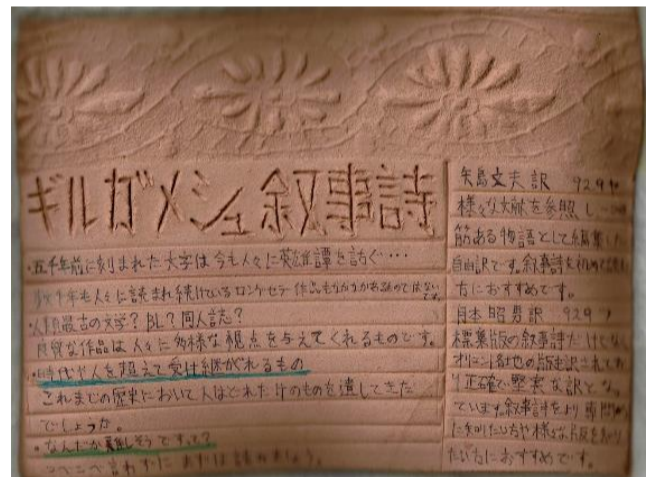 ギルガメシュ叙事詩
・五千年前に刻まれた文字は今も人々に英雄譚を訪ぐ…
数千年も人々に読まれ続けているロングセラー作品もなかなかあるのではないです。
人類最古の文学？BL？同人誌？
良質な作品は人々に多様な視点を与えてくれるものです。
・時代や人を超えて受け継がれるもの
これまでの歴史において人はどれだけのものを遺してきた
でしょうか。
・なんだか難しそうですって？
言わずにまずは読みましょう。
矢島文夫訳 929
様々な文献を参照し
筋ある物語として編集した
自由訳です。叙事詩を初めて
方におすすめです。
月本昭男訳 929
標準版の叙事詩だけでなく
オリエント各地の版も訳されてお
り正確で堅実な訳とな
ています。叙事詩をより専門的
に知りたい方や様々な版を知り
たい方におすすめです。